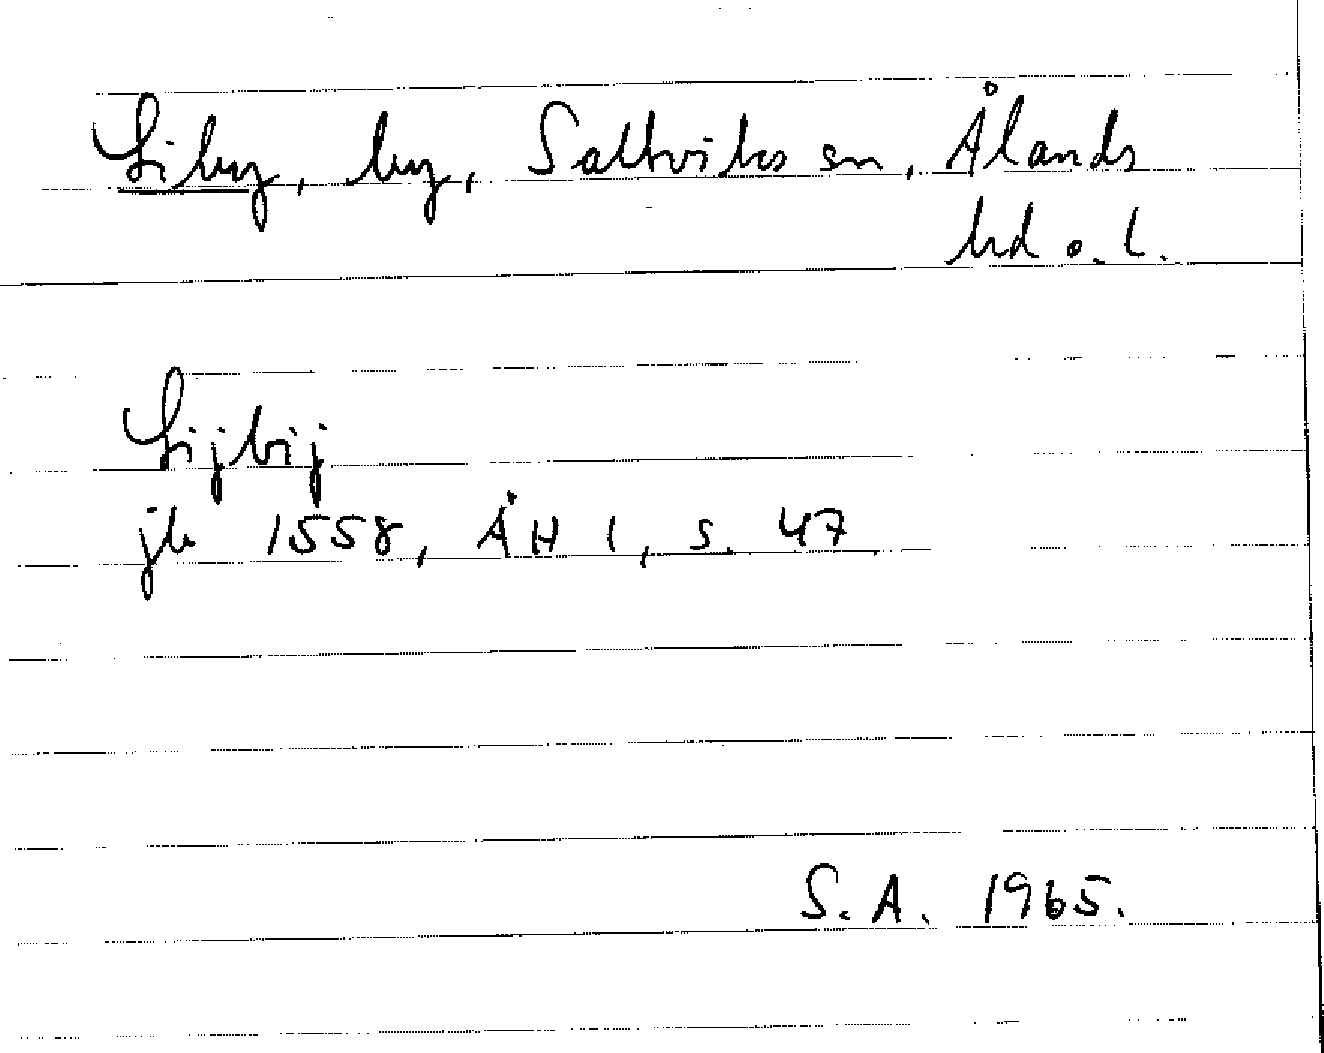 Liby, by, Saltviks sn, Ålands
hd o. l.
Lijbij
jb 1558, ÅH 1, s. 47
S. A. 1965.